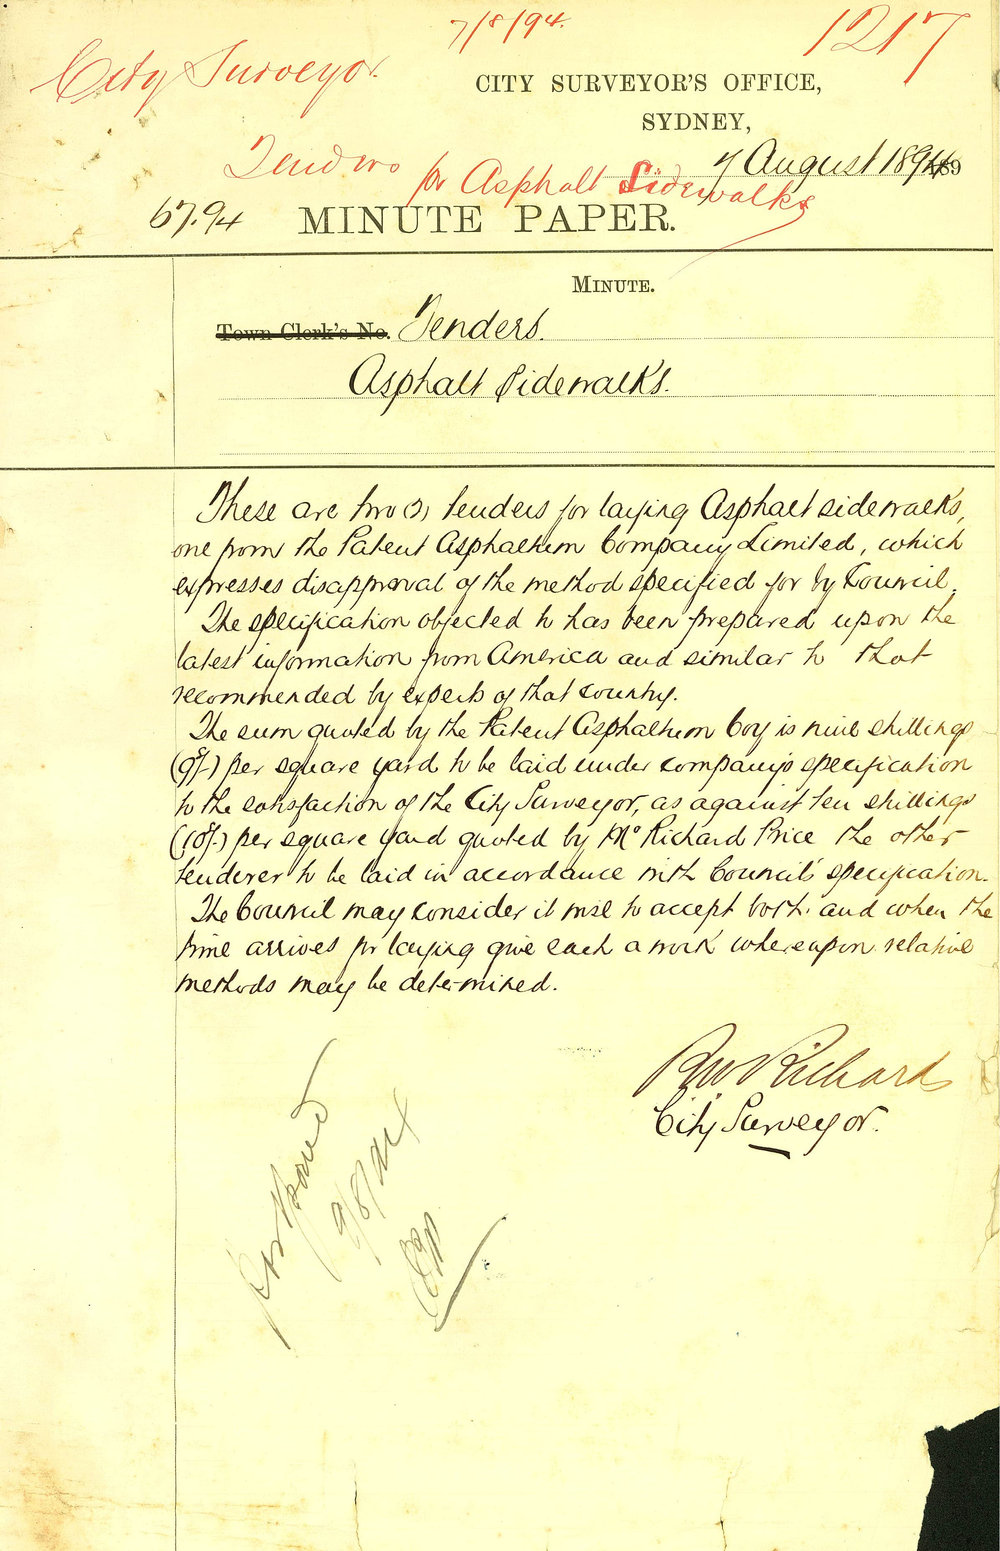 7/8/94.
1217
City Surveyor.
CITY SURVEYOR'S OFFICE,
SYDNEY,
7 August 1894 189
Tenders for Asphalt Sidewalks
67.94 MINUTE PAPER.
MINUTE.
Town Clerk's No. Tenders.
Asphalt Sidewalks.
These are two (2) tenders for laying Asphalt sidewalks,
one from the Patent Asphaltum Company Limited, which
expresses disapproval of the method specified for by Council.
The specification objected to has been prepared upon the
latest information from America and similar to that
recommended by experts of that country.
The sum quoted by the Patent Asphaltum Coy is nine shillings
(9/-) per square yard to be laid under company's specification
to the satisfaction of the City Surveyor, as against ten shillings
(10/-) per square yard quoted by Mr Richard Price the other
tenderer to be laid in accordance with Council's specification.
The Council may consider it wise to accept both and when the
time arrives for laying give each a work whereupon relative
methods may be determined.
RW Richards
City Surveyor.
Postponed
9/8/94